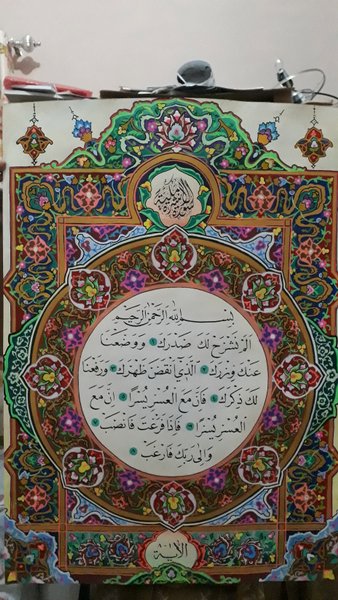 بِسْمِ اللهِ الرَّحْمٰنِ الرَّحِيْمِ
اَلَمْ نَشْرَحْ لَكَ صَدْرَكَ ١ وَوَضَعْنَا
عَنْكَ وِزْرَكَ ٢ الَّذِيْٓ اَنْقَضَ ظَهْرَكَ ٣ وَرَفَعْنَا
لَكَ ذِكْرَكَ ٤ فَاِنَّ مَعَ الْعُسْرِ يُسْرًا ٥ اِنَّ مَعَ
الْعُسْرِ يُسْرًا ٦ فَاِذَا فَرَغْتَ فَانْصَبْ ٧
وَاِلٰى رَبِّكَ فَارْغَبْ ٨
الآية